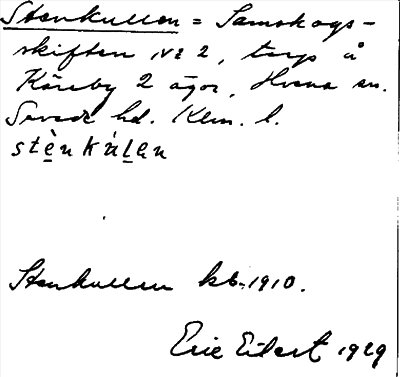 Stenkullen = Samskogs-
skiften No 2, torp å
Käreby 2 ägor, Hvena sn.
Sevede hd. Klm. l.
stè̱nkúḻa̱n
Stenkullen kb. 1910.
Eric Eilert 1929